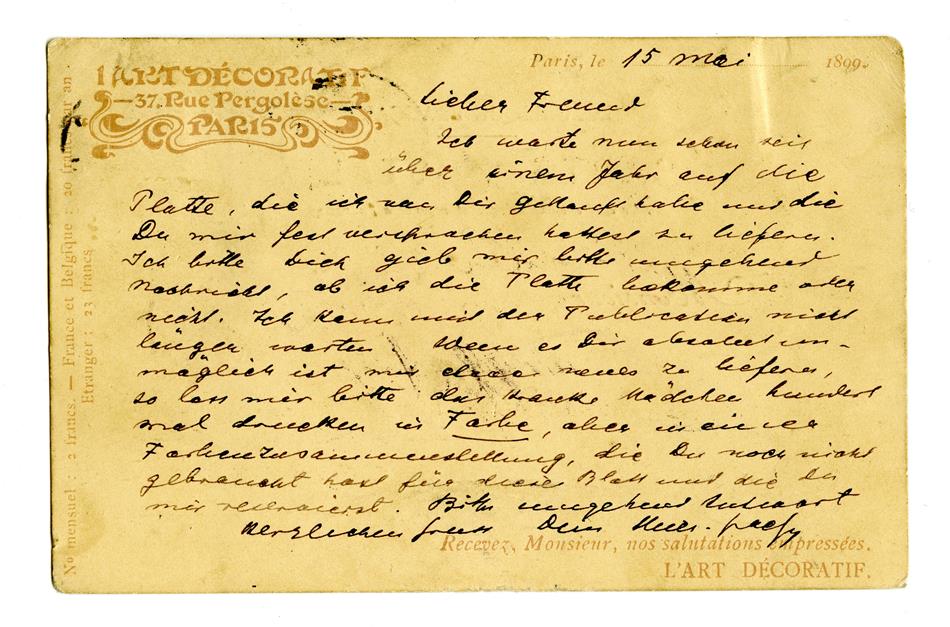 L'ART DÉCORATIF
37. Rue Pergolèse
PARIS
Paris, le 15 Mai 1899.
Lieber Freund
Ich warte nun schon seit
über einem Jahr auf die
Platte, die ich von Dir gekauft habe und die
Du mir fest versprochen hattest zu liefern.
Ich bitte Dich gieb mir bitte umgehend
Nachricht, ob ich die Platte bekomme oder
nicht. Ich kann mit der Publication nicht
länger warten. Wenn es Dir absolut un-
möglich ist mir etwas neues zu liefern,
so lass mir bitte das kranke Mädchen hundert
mal drucken in Farbe, aber in einer
Farbenzusammenstellung, die Du noch nicht
gebraucht hast für dieses Blatt und die Du
mir reservierst. Bitte umgehend Antwort
Herzlichen Gruss Dein
Recevez, Monsieur, nos salutations empressées.
L'ART DÉCORATIF.
No mensuel : 2 francs. — France et Belgique : 20 francs par an.
Etranger : 23 francs